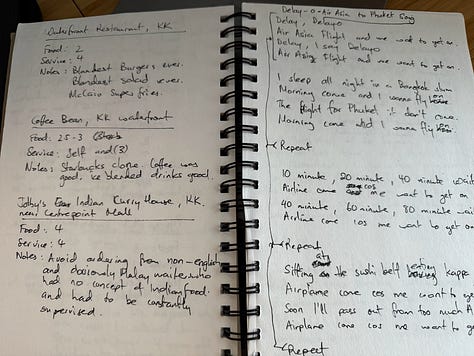 Waterfront Restaurant, KK.
Food: 2
Service: 4
Notes: Blandest Burgers ever.
Blandest salad ever.
McCain Super fries.
Coffee Bean, KK waterfront
Food: 2.5-3
Service: Self and (3)
Notes: Starbucks clone. Coffee was
good, ice blended drinks good.
Indian Curry House, KK.
near Centrepoint Mall
Food: 4
Service: 4
Notes: Avoid ordering from non-english
and obviously Malay waiter who
had no concept of Indian food
and had to be constantly
supervised.
Delay-O-Air Asia to Phuket Song
Delay, Delayo
Air Asia Flight and me want to get on.
Delay, I say Delayo
Air Asia Flight and me want to get on.
I sleep all night in a Bangkok slum
Morning come and I wanna fly on
The flight for Phuket, it don't come.
Morning come and I wanna fly on
Repeat
10 minute, 20 minute, 40 minute
Airline come cos me want to get on
40 minute, 60 minute, 80 minute
Airline come cos me want to get on
Repeat
Sitting at the sushi belt eating kappa
Airplane come cos me want to get
Soon I'll pass out from too much
Airplane come cos me want to get
Repeat